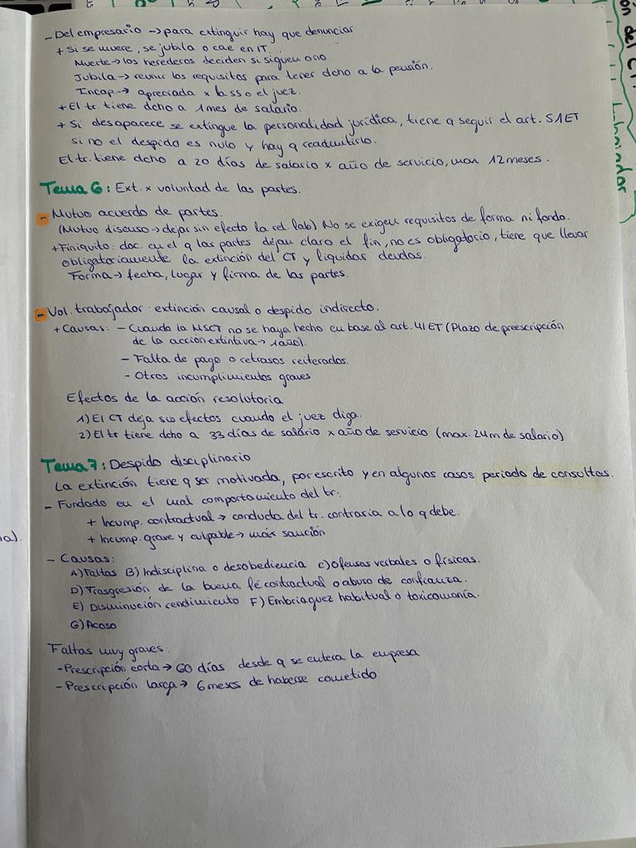 - Del empresario → para extinguir hay que denunciar
+ Si se muere, se jubila o cae en IT...
Muerte → los herederos deciden si siguen o no
Jubila → reunir los requisitos para tener dcho a la pensión.
Incap. → apreciada x la SS o el juez.
+ El tr. tiene dcho a 1 mes de salario.
+ Si desaparece se extingue la personalidad jurídica, tiene q seguir el art. 51 ET
si no el despido es nulo y hay q readmitirlo.
El tr. tiene dcho a 20 días de salario x año de servicio, max 12 meses.
Tema 6: Ext. x voluntad de las partes.
- Mutuo acuerdo de partes.
(Mutuo disenso → dejar sin efecto la rel. lab) No se exigen requisitos de forma ni fondo.
+ Finiquito: doc. en el q las partes dejan claro el fin, no es obligatorio, tiene que llevar
obligatoriamente la extinción del CT y liquidar deudas.
Forma → fecha, lugar y firma de las partes.
- Vol. trabajador: extinción causal o despido indirecto.
+ Causas: - Cuando la MSCT no se haya hecho en base al art. 41 ET (Plazo de prescripción
de la acción extintiva → 1 año).
- Falta de pago o retrasos reiterados.
- Otros incumplimientos graves
Efectos de la acción resolutoria
1) El CT deja sus efectos cuando el juez diga.
2) El tr tiene dcho a 33 días de salario x año de servicio (max. 24 m de salario)
Tema 7: Despido disciplinario
La extinción tiene q ser motivada, por escrito y en algunos casos periodo de consultas.
- Fundado en el mal comportamiento del tr:
+ Incump. contractual → conducta del tr. contraria a lo q debe.
+ Incump. grave y culpable → máx sanción
- Causas:
A) Faltas B) Indisciplina o desobediencia C) Ofensas verbales o físicas.
D) Trasgresión de la buena fé contractual o abuso de confianza.
E) Disminución rendimiento F) Embriaguez habitual o toxicomanía.
G) Acoso
Faltas muy graves.
- Prescripción corta → 60 días desde q se entera la empresa
- Prescripción larga → 6 meses de haberse cometido